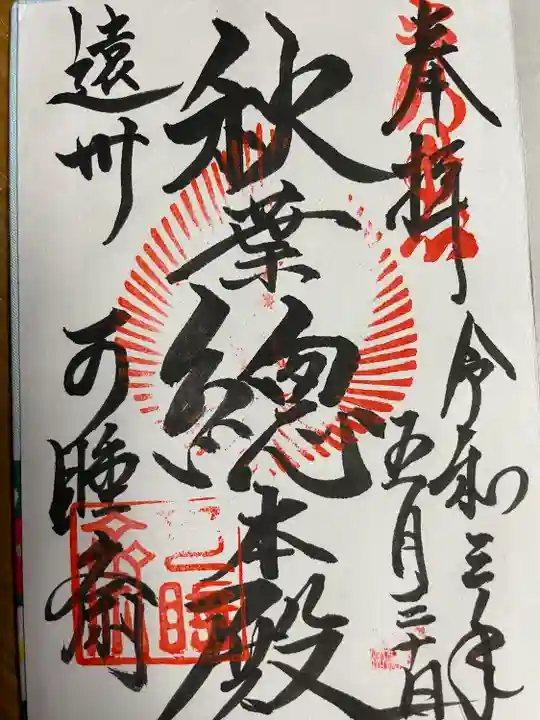 奉拝
令和三年
五月三十日
秋葉總本殿
遠州 可睡斎